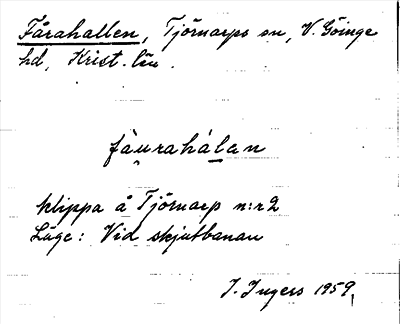 Fårahallen, Tjörnarps sn, V. Göinge
hd, Krist. län.
fàu̯rahálan
klippa å Tjörnarp n:r 2
Läge: Vid skjutbanan
I. Ingers 1959.